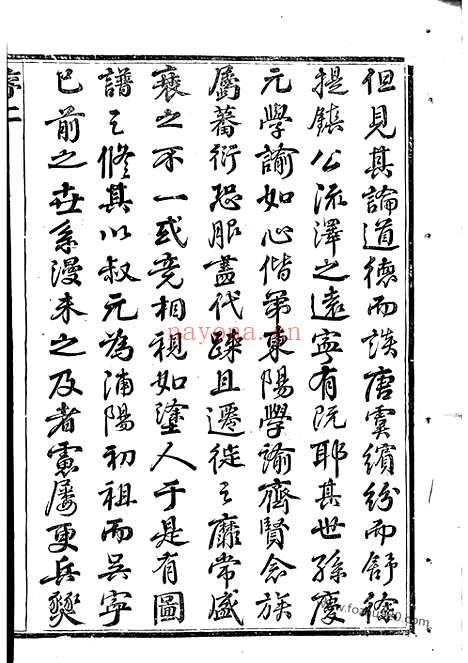 但見其論道德而談唐虞繽紛而舒徐
提鎮公流澤之遠寧有阮耶其世孫慶
元學諭如心偕弟東陽學諭齊賢念族
屬蕃衍恐服盡代疎且遷徙之靡常盛
衰之不一或竟相視如塗人于是有圖
譜之脩其以叔元為浦陽初祖而吳寧
已前之世系漫未之及者慮屢更兵燹
序二
nayona.cn